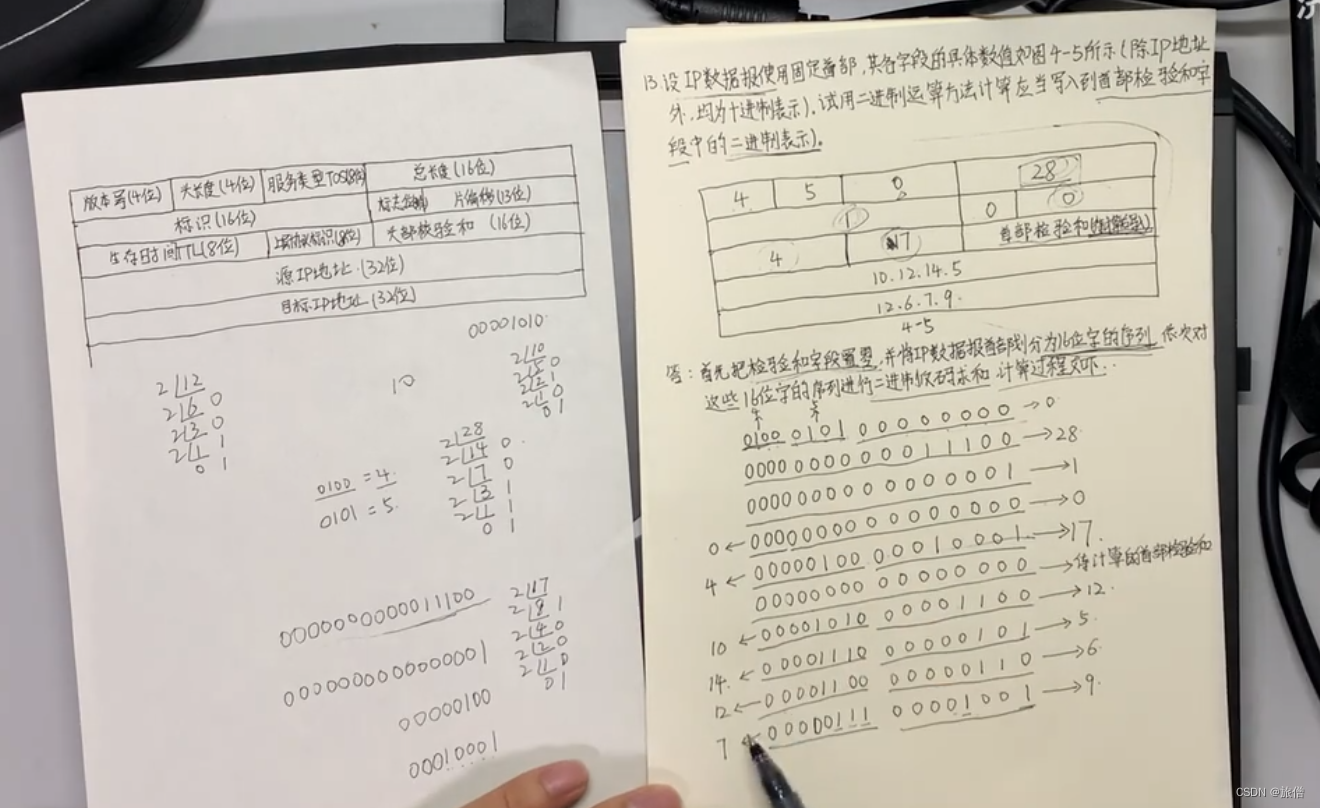 版本号(4位) 头长度(4位) 服务类型TOS(8位) 总长度(16位)
标识(16位) 片偏移(13位)
生存时间TTL(8位) 头部校验和 (16位)
源IP地址.(32位)
目标IP地址(32位)
00001010
2 12
2 6 0
2 3 0
2 1 1
0 1
10
2 10
0 1
0100 = 4
0101 = 5.
2 28
2 14 0
2 7 0
2 3 1
2 1 1
0 1
0000000000011100
0000000000000001
00000100
00010001
2 17
2 8 1
2 4 0
2 2 0
2 1 0
0 1
13.设IP数据报使用固定首部,其各字段的具体数值如图4-5所示(除IP地址
外,均为十进制表示).试用二进制运算方法计算应当写入到首部检验和字
段中的二进制表示).
4 5 0 28
1 0 0
4 17 首部检验和
10.12.14.5
12.6.7.9.
4-5
答:首先把检验和字段置零,并将IP数据报首部划分为16位字的序列,依次对
这些16位字的序列进行二进制反码求和.计算过程如下..
0100 0101 00000000→0
0000000000011100→28
0000000000000001→1
0←0000000000000000→0
4←00000100 00010001→17.
00000000 00000000→待计算的首部检验和
10←00001010 00001100→12.
14.←00001110 00000101→5.
12←00001100 00000110→6.
7←00000111 00001001→9.
CSDN @旅僧